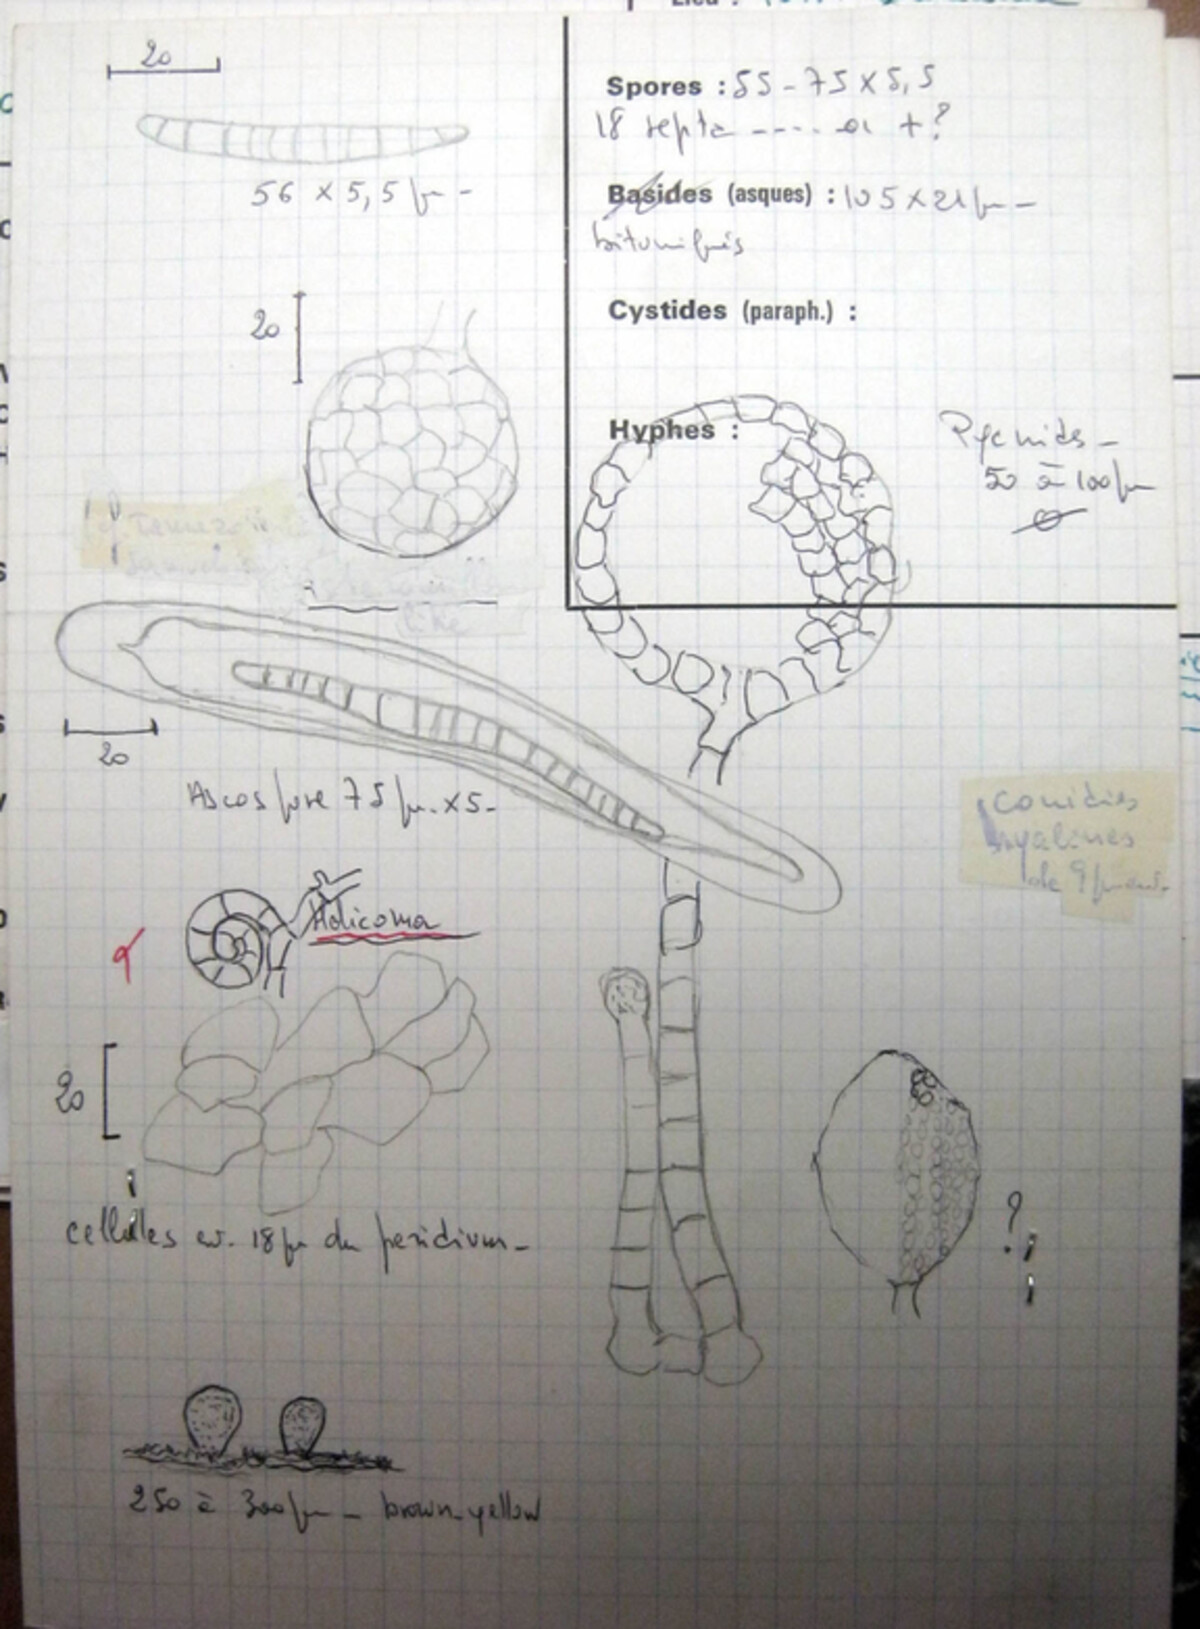 20
56 x 5,5 µ -
Spores : 55 - 75 x 5,5
18 septa ---- ou + ?
Basides (asques) : 105 x 21 µ -
bituniqués
Cystides (paraph.) :
Hyphes :
Pycnides -
50 à 100 µ
20
like
20
Ascospore 75 µ. x 5 -
conidies
hyalines
de 9 µ
Helicoma
20
cellules ev. 18 µ du peridium -
?
250 à 300 µ - brown-yellow